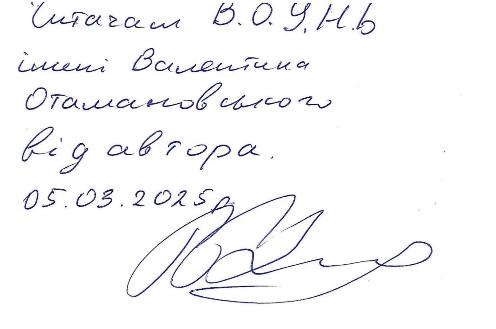 Читачам В.О.У.Н.Б
імені Валентина
Отамановського
від автора.
05.03.2025р